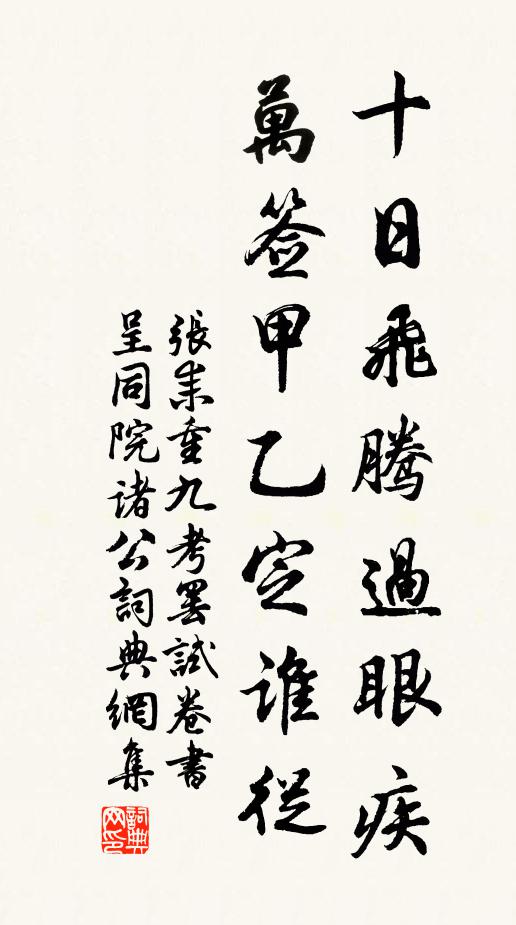 十日飛騰過眼疾
萬簽甲乙定誰從
張耒重九考罷試卷書
呈同院諸公詞典網集
詞典
网印